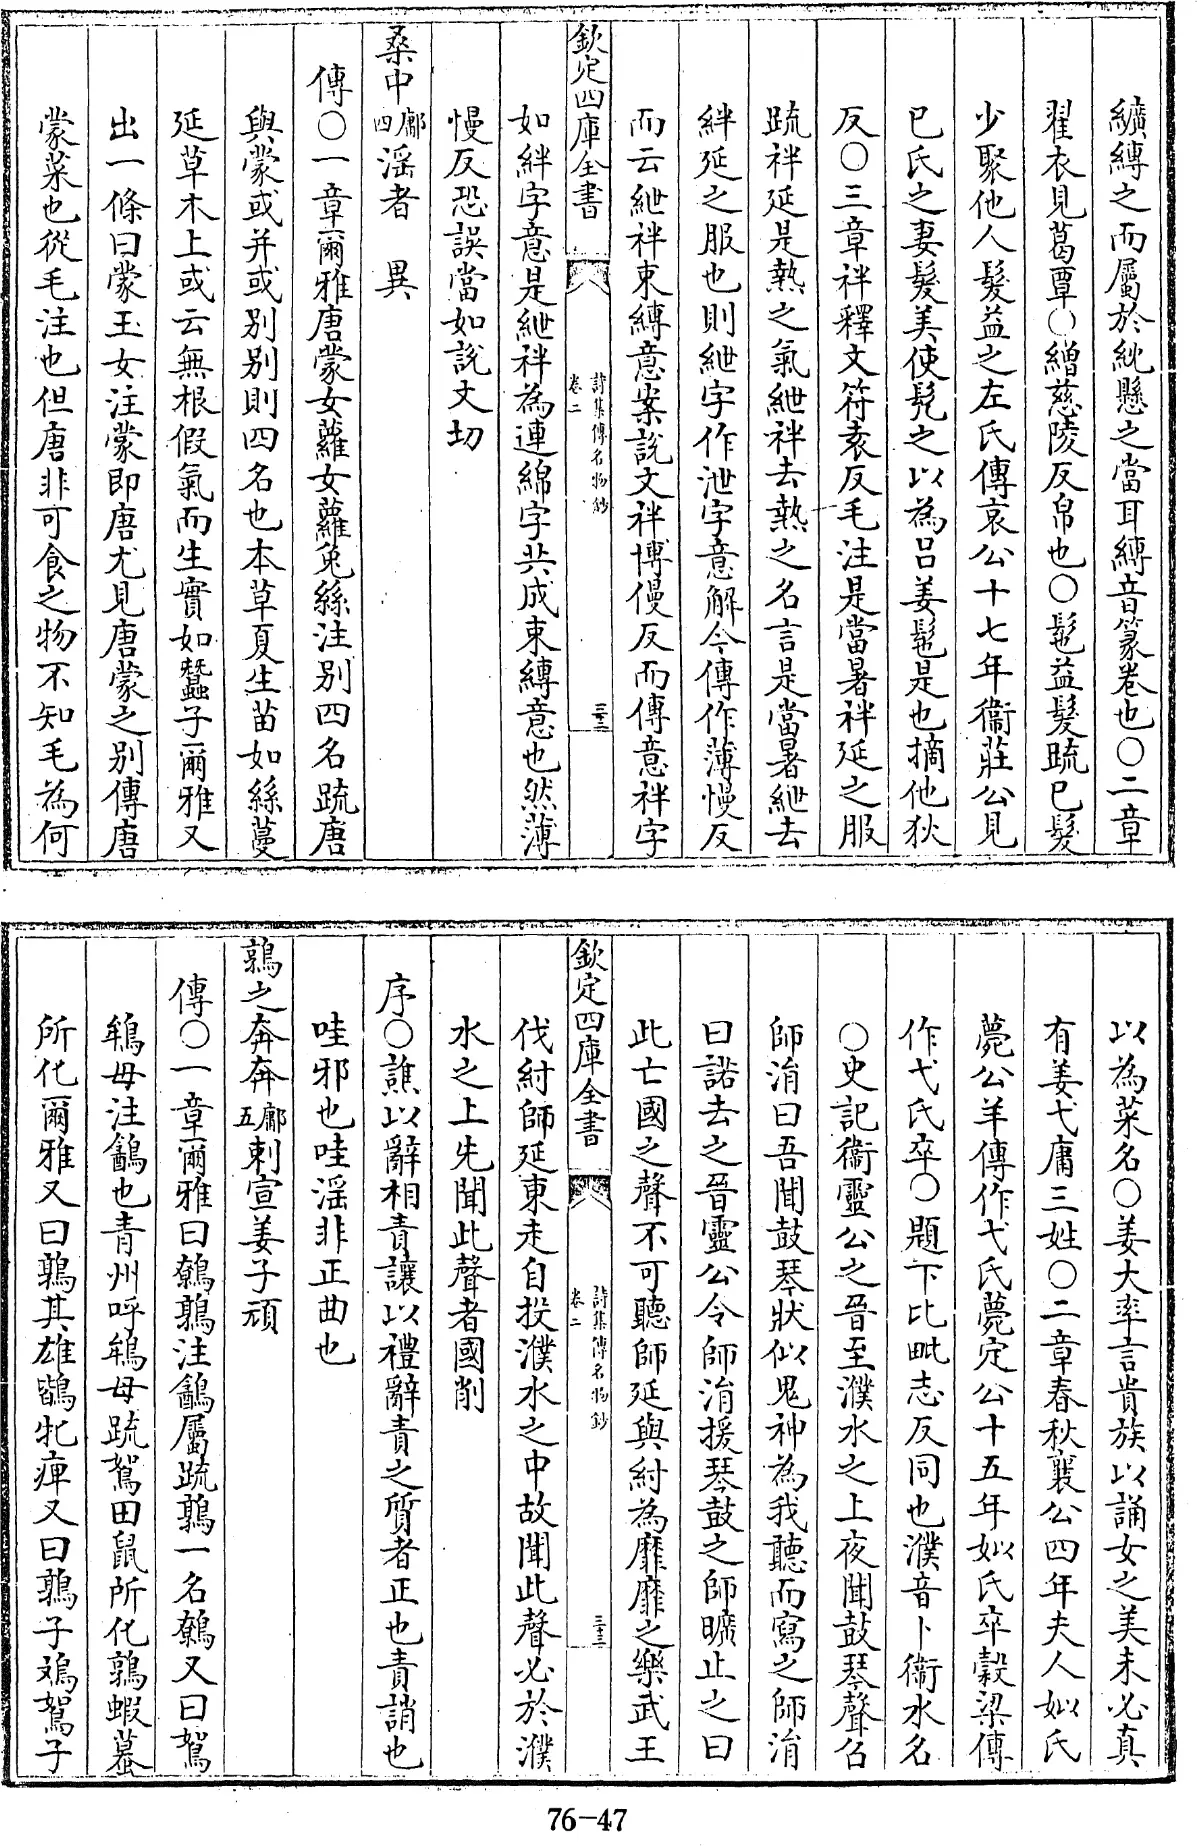 纊縳之而屬於紞懸之當耳縳音篆卷也〇二章
翟衣見葛覃〇繒慈陵反帛也〇髢益髮䟽已髮
少聚他人髮益之左氏傳哀公十七年衛莊公見
已氏之妻髮美使髠之以為呂姜髢是也摘他狄
反〇三章袢釋文符袁反毛注是當暑袢延之服
䟽袢延是熱之氣紲袢去熱之名言是當暑紲去
絆延之服也則紲字作泄字意解今傳作薄慢反
而云紲袢束縛意案說文袢博僈反而傳意袢字
欽定四庫全書
詩集傳名物鈔
卷二
三十二
如絆字意是紲袢為連綿字共成束縛意也然薄
慢反恐誤當如說文切
桑中鄘四淫者 異
傳〇一章爾雅唐蒙女蘿女蘿兔絲注别四名䟽唐
與蒙或并或别别則四名也本草夏生苗如絲蔓
延草木上或云無根假氣而生實如蠶子爾雅又
出一條曰蒙王女注蒙即唐尤見唐蒙之别傳唐
蒙菜也從毛注也但唐非可食之物不知毛為何
以為菜名〇姜大率言貴族以誦女之美未必真
有姜弋庸三姓〇二章春秋襄公四年夫人姒氏
薨公羊傳作弋氏薨定公十五年姒氏卒穀梁傳
作弋氏卒〇題下比毗志反同也濮音卜衛水名
〇史記衛靈公之晉至濮水之上夜聞鼓琴聲召
師涓曰吾聞鼓琴狀似鬼神為我聽而寫之師涓
曰諾去之晉靈公令師涓援琴鼓之師曠止之曰
此亡國之聲不可聽師延與紂為靡靡之樂武王
欽定四庫全書
詩集傳名物鈔
卷二
三十三
伐紂師延東走自投濮水之中故聞此聲必於濮
水之上先聞此聲者國削
序〇譙以辭相責讓以禮辭責之質者正也責誚也
哇邪也哇淫非正曲也
鶉之奔奔鄘五刺宣姜子頑
傳〇一章爾雅曰鷯鶉注鶉屬䟽鶉一名鷯又曰鴽
鴾母注鷂也青州呼鴾母䟽鴽田鼠所化鶉蝦蟇
所化爾雅又曰鶉其雄鶛牝痺又曰鶉子鳼鴽子
76-47